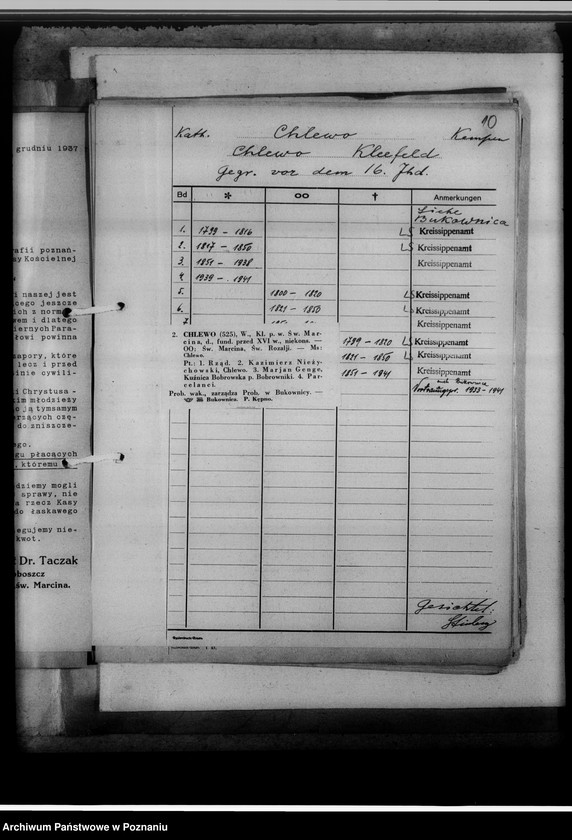 grudniu 1937
rafii poznań-
sy Kościelnej
i naszej jest
cego jeszcze
ich z norm
wem i dlatego
iernych Para-
łowi powinna
sapory, które
lecz i przed
dnie cywili-
i Chrystusa -
kim młodzieży
o ją tymsamym
rzących czę-
do zniszcze-
ego.
gu płacących
, któremu
dziemy mogli
sprawy, nie
a rzecz Kasy
do łaskawego
egujemy nie-
kwot.
Dr. Taczak
boszcz
św. Marcina.
10
Kath. Chlewo Kempen
Chlewo Kleefeld
Gegr. vor dem 16. Jhd.
Bd * oo † Anmerkungen
Siehe
Bukownica
1. 1799 - 1816 LS Kreissippenamt
2. 1817 - 1850 LS Kreissippenamt
3. 1851 - 1938 Kreissippenamt
4. 1939 - 1941
5. 1800 - 1820 LS Kreissippenamt
6. 1821 - 1850 LS Kreissippenamt
7. Kreissippenamt
2. CHLEWO (525), W., Kł. p. w. Św. Mar-
cina, d., fund. przed XVI w., niekons. —
OO: Św. Marcina, Św. Rozalji. — Ms:
Chlewo.
Pt: 1. Rząd. 2. Kazimierz Nieży-
chowski, Chlewo. 3. Marjan Genge,
Kuźnica Bobrowska p. Bobrowniki. 4. Par-
celanci.
Prob. wak., zarządza Prob. w Bukownicy. —
Bukownica. P. Kępno.
1799 - 1820 LS Kreissippenamt
1821 - 1850 LS Kreissippenamt
1851 - 1941 Kreissippenamt
Bukownica
1933 - 1941
Gesichtet:
Archiwum Państwowe w Poznaniu